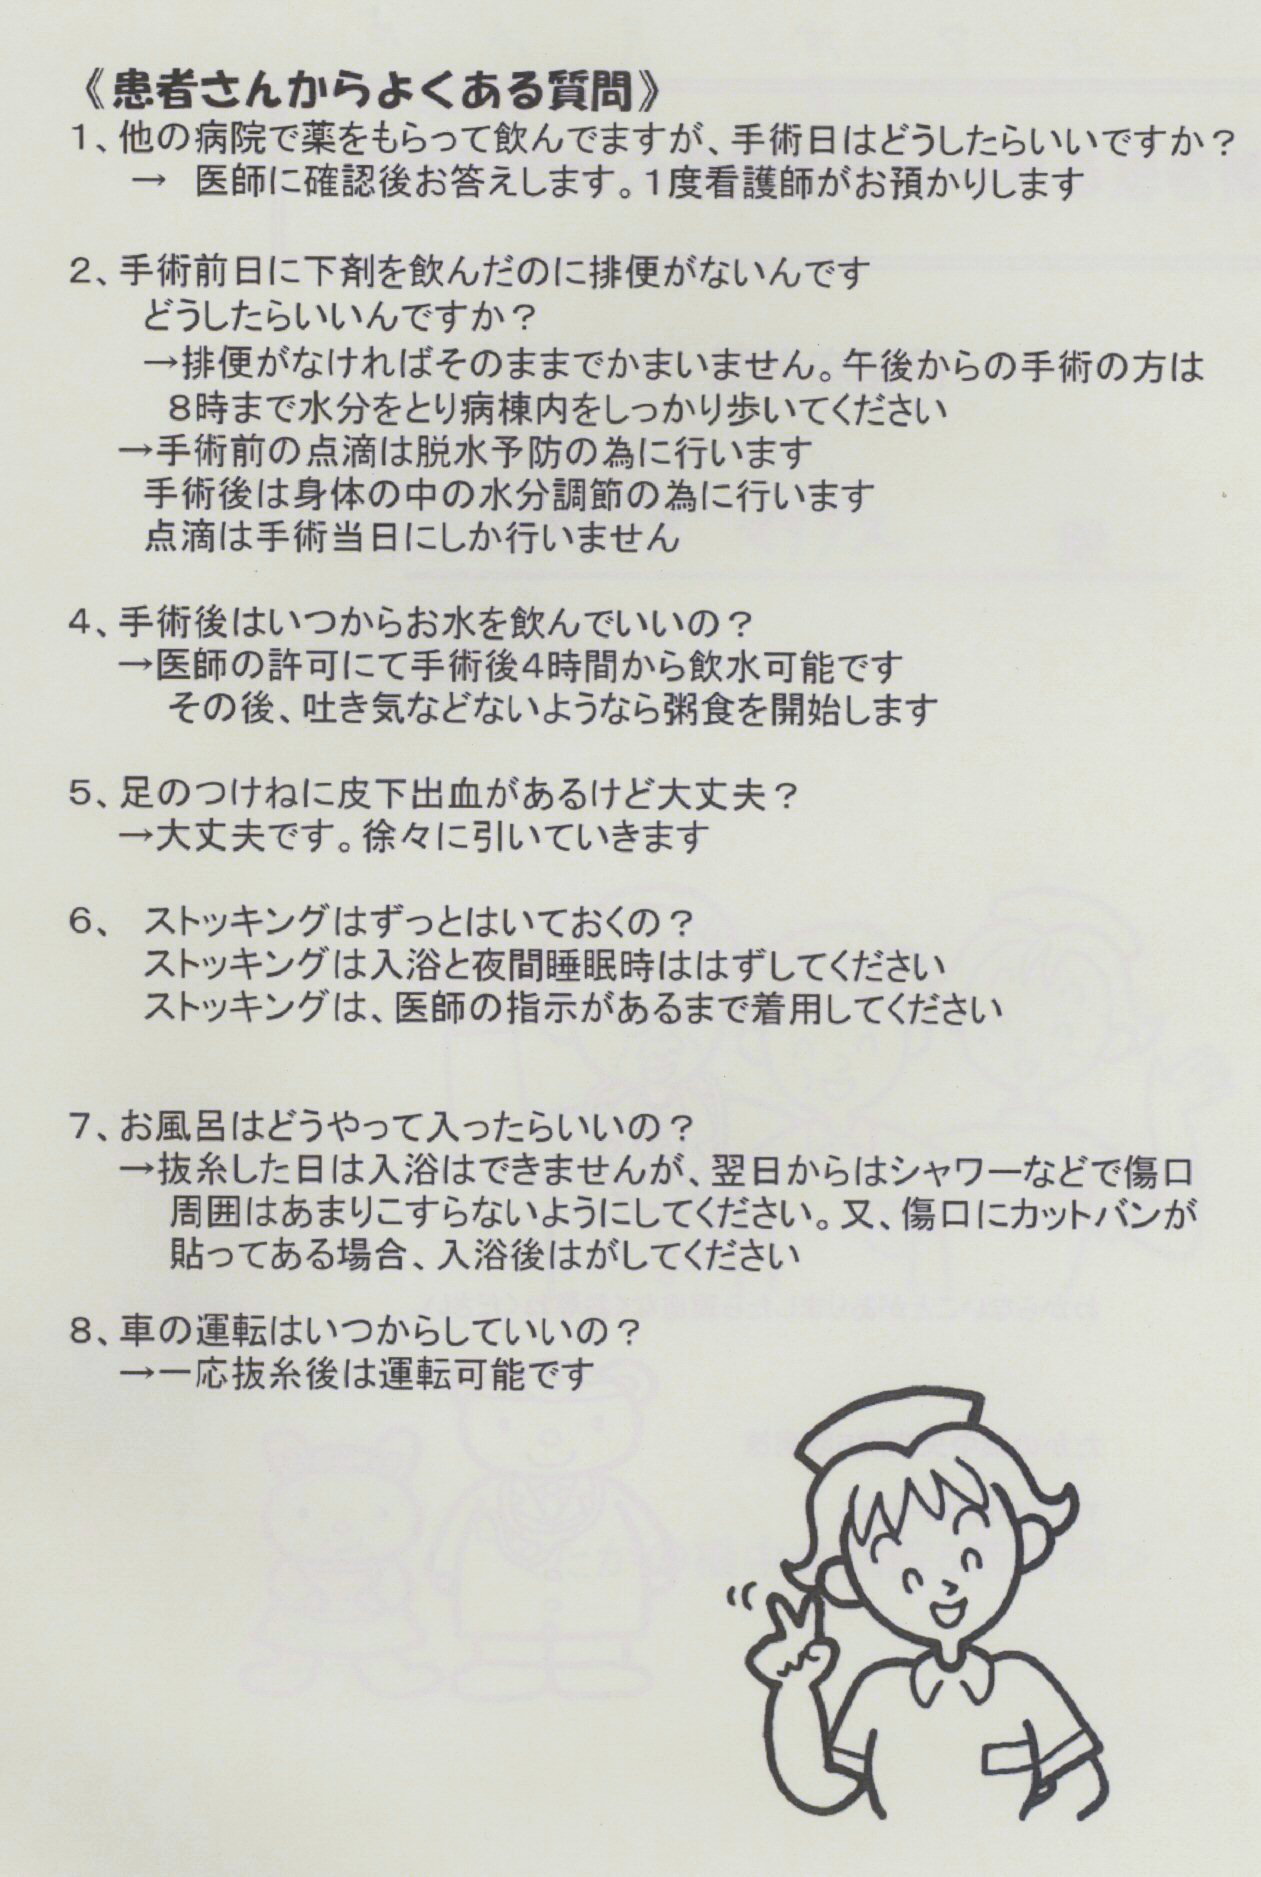 《患者さんからよくある質問》
１、他の病院で薬をもらって飲んでますが、手術日はどうしたらいいですか？
→　医師に確認後お答えします。１度看護師がお預かりします
２、手術前日に下剤を飲んだのに排便がないんです
どうしたらいいんですか？
→排便がなければそのままでかまいません。午後からの手術の方は
８時まで水分をとり病棟内をしっかり歩いてください
→手術前の点滴は脱水予防の為に行います
手術後は身体の中の水分調節の為に行います
点滴は手術当日にしか行いません
４、手術後はいつからお水を飲んでいいの？
→医師の許可にて手術後４時間から飲水可能です
その後、吐き気などないようなら粥食を開始します
５、足のつけねに皮下出血があるけど大丈夫？
→大丈夫です。徐々に引いていきます
６、　ストッキングはずっとはいておくの？
ストッキングは入浴と夜間睡眠時ははずしてください
ストッキングは、医師の指示があるまで着用してください
７、お風呂はどうやって入ったらいいの？
→抜糸した日は入浴はできませんが、翌日からはシャワーなどで傷口
周囲はあまりこすらないようにしてください。又、傷口にカットバンが
貼ってある場合、入浴後はがしてください
８、車の運転はいつからしていいの？
→一応抜糸後は運転可能です